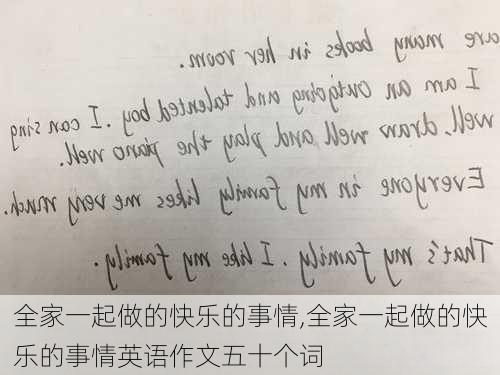 are many books in her room.
I am an outgoing and talented boy. I can sing
well, draw well and play the piano well.
Everyone in my family likes me very much.
That's my family. I like my family.
全家一起做的快乐的事情,全家一起做的快
乐的事情英语作文五十个词